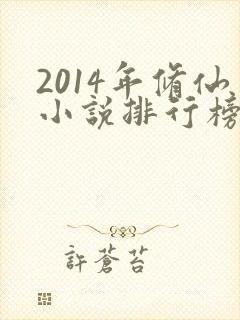 2014年修仙
小说排行榜
許蒼苔